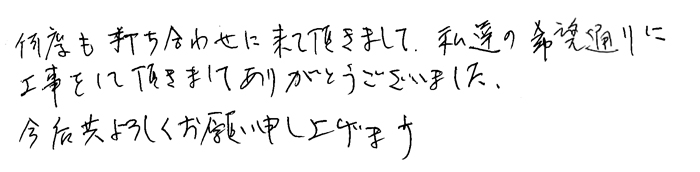 何度も打ち合わせに来て頂きまして、私達の希望通りに
工事をして頂きましてありがとうございました、
今后共よろしくお願い申し上げます